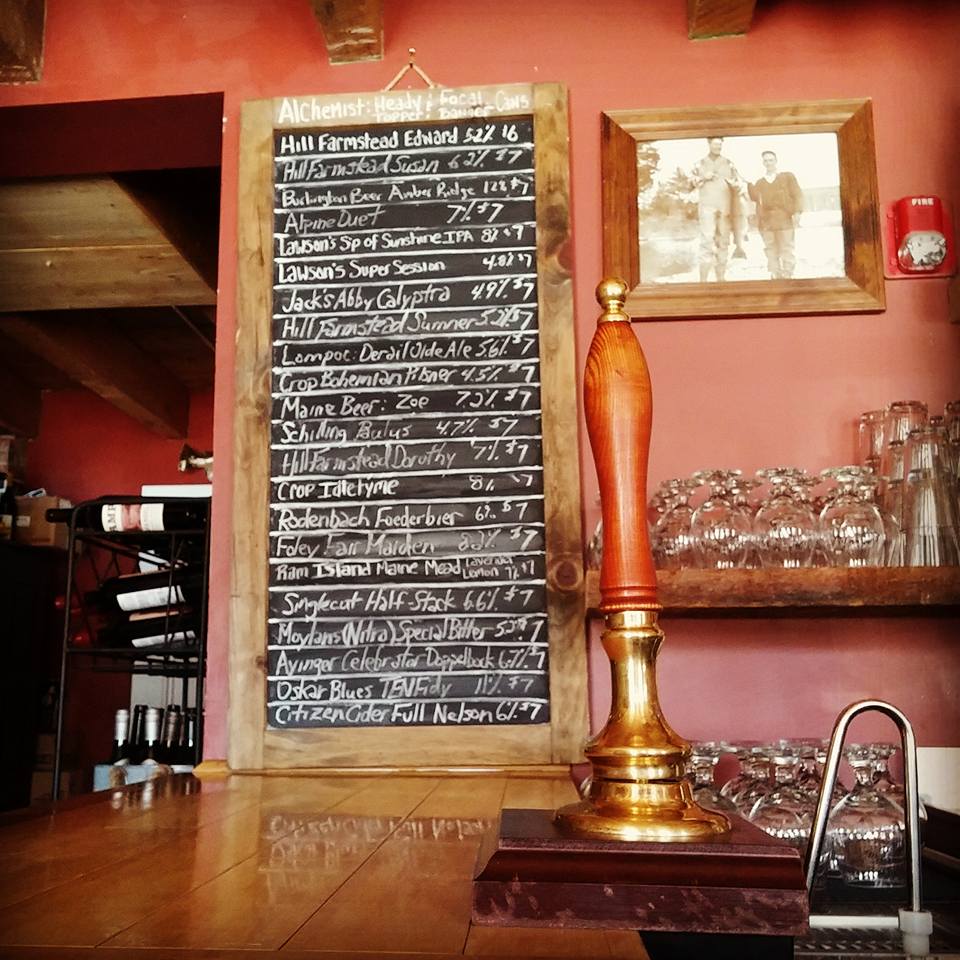 Alchemist: Heady : Focal Cans
Topper : Banger
Hill Farmstead Edward 5.2% $6
Hill Farmstead Susan 6.2% $7
Burlington Beer Amber Ridge $7
Alpine Duet 7% $7
Lawson's Sp of Sunshine IPA 8% $7
Lawson's Super Session 4.8% $7
Jack's Abby Calyptra 4.9% $7
Hill Farmstead Sumner 5.2% $7
Lompoc: Derail Olde Ale 5.6% $7
Crop Bohemian Pilsner 4.5% $7
Maine Beer: Zoe 7.2% $7
Schilling Paulus 4.7% $7
Hill Farmstead Dorothy 7% $7
Crop Idletyme 8% $7
Rodenbach Foederbier 6% $7
Foley Fair Maiden 8.2% $7
Ram Island Maine Mead Lavender
Lemon 7% $7
Singlecut Half-Stack 6.6% $7
Moylans (Nitro) Special Bitter 5% $7
Ayinger Celebrator Doppelbock 6.7% $7
Oskar Blues TENFidy 11% $7
Citizen Cider Full Nelson 6% $7
FIRE